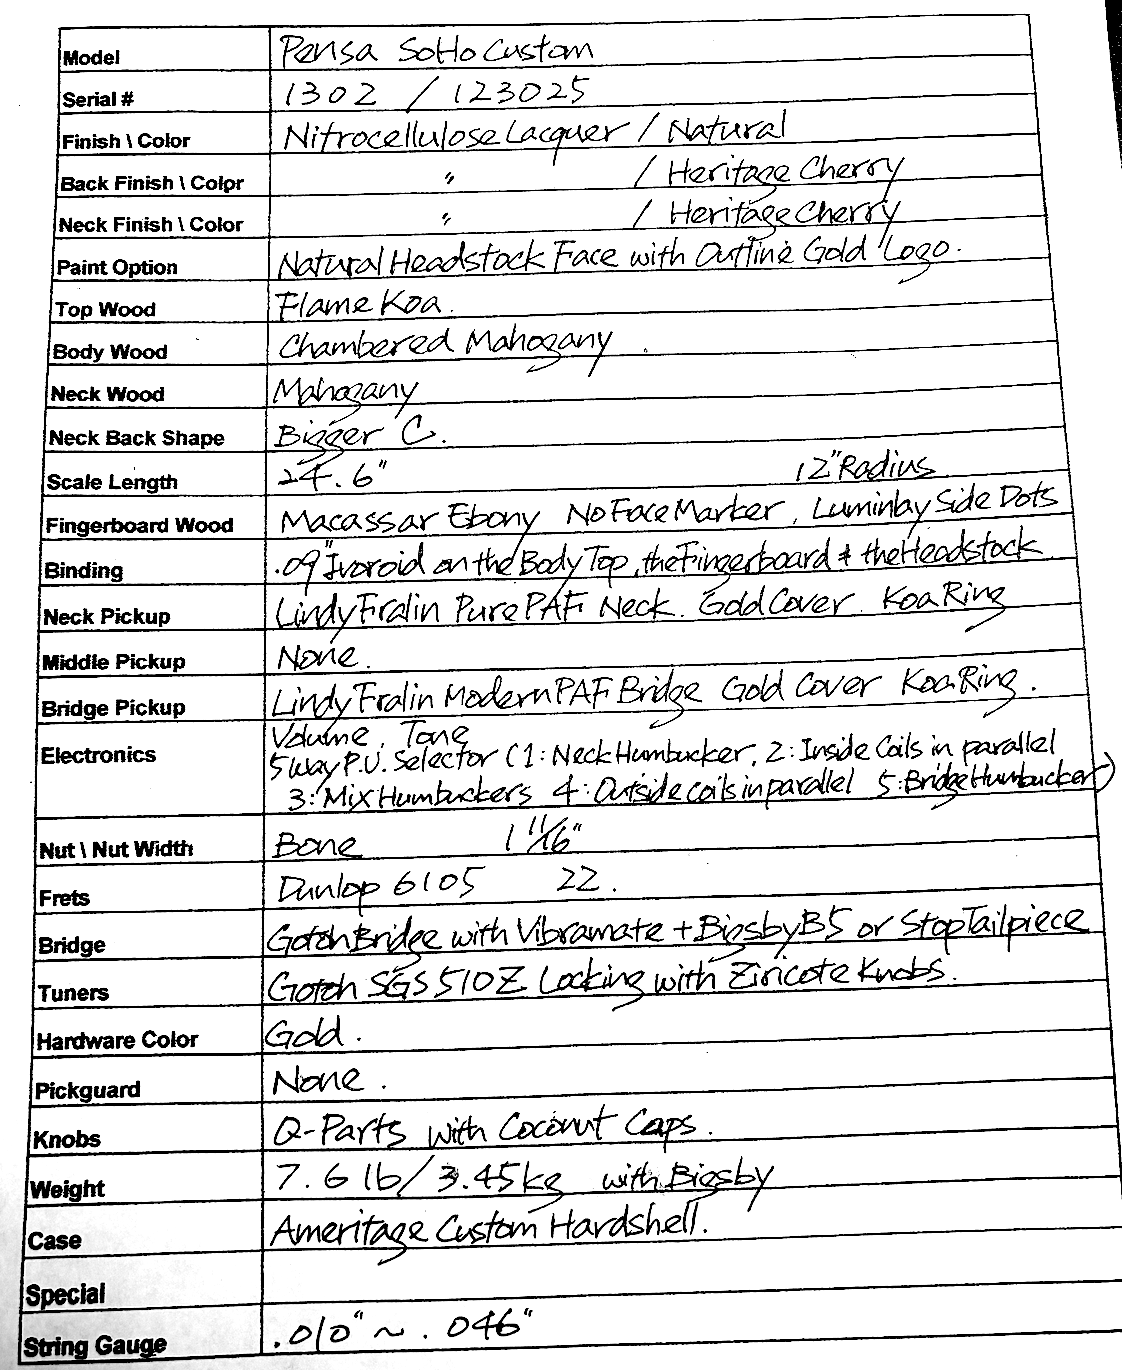 Model Pensa SoHo Custom
Serial # 1302 / 123025
Finish \ Color Nitrocellulose Lacquer / Natural
Back Finish \ Color 〃 / Heritage Cherry
Neck Finish \ Color 〃 / Heritage Cherry
Paint Option Natural Headstock Face with Outline Gold Logo.
Top Wood Flame Koa.
Body Wood Chambered Mahogany.
Neck Wood Mahogany
Neck Back Shape Bigger C.
Scale Length 24.6" 12" Radius
Fingerboard Wood Macassar Ebony No Face Marker, Luminlay Side Dots
Binding .09" Ivoroid on the Body Top, the Fingerboard & the Headstock
Neck Pickup Lindy Fralin Pure PAF Neck. Gold Cover. Koa Ring
Middle Pickup None.
Bridge Pickup Lindy Fralin Modern PAF Bridge Gold Cover Koa Ring.
Electronics Volume, Tone
5 Way P.U. Selector (1: Neck Humbucker, 2: Inside Coils in parallel
3: Mix Humbuckers 4: Outside coils in parallel 5: Bridge Humbucker)
Nut \ Nut Width Bone 1 11/16"
Frets Dunlop 6105 22.
Bridge Gotoh Bridge with Vibramate + Bigsby B5 or Stop Tailpiece
Tuners Gotoh SGS510Z Locking with Ziricote Knobs.
Hardware Color Gold.
Pickguard None.
Knobs Q-Parts with Coconut Caps.
Weight 7.6 lb / 3.45 kg with Bigsby
Case Ameritage Custom Hardshell.
Special
String Gauge .010" ~ .046"